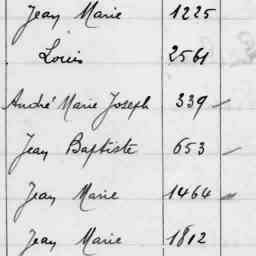 Jean Marie 1225
Louis 2561
André Marie Joseph 339
Jean Baptiste 653
Jean Marie 1464
Jean Marie 1812